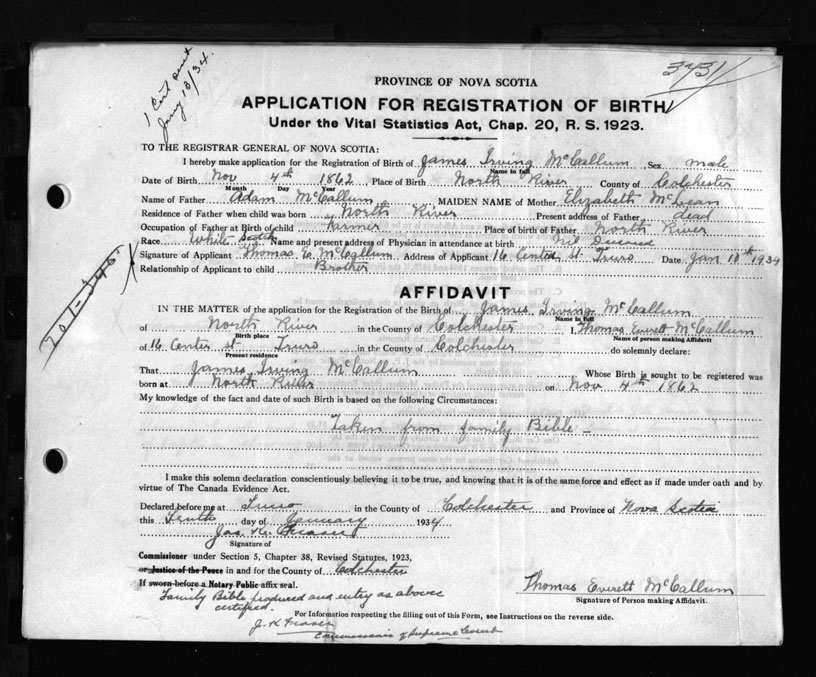 1 Cert sent
Jany 13/34.
3731
PROVINCE OF NOVA SCOTIA
APPLICATION FOR REGISTRATION OF BIRTH
Under the Vital Statistics Act, Chap. 20, R. S. 1923.
TO THE REGISTRAR GENERAL OF NOVA SCOTIA:
I hereby make application for the Registration of Birth of James Irving McCallum Sex male
Name in full
Date of Birth Nov 4th 1862 Place of Birth North River County of Colchester
Month Day Year
Name of Father Adam McCallum MAIDEN NAME of Mother Elizabeth McLean
Residence of Father when child was born North River Present address of Father dead
Occupation of Father at Birth of child Farmer Place of birth of Father North River
Race White Scotch Name and present address of Physician in attendance at birth Nil
Signature of Applicant Thomas E. McCallum Address of Applicant 16 Center St. Truro Date Jan 10th 1934
Relationship of Applicant to child Brother
701-345
AFFIDAVIT
IN THE MATTER of the application for the Registration of the Birth of James Irving McCallum
Name in full
of North River in the County of Colchester I, Thomas Everett McCallum
Birth place Name of person making Affidavit
of 16 Center St Truro in the County of Colchester do solemnly declare:
Present residence
That James Irving McCallum Whose Birth is sought to be registered was
born at North River on Nov 4th 1862
My knowledge of the fact and date of such Birth is based on the following Circumstances:
Taken from family Bible
I make this solemn declaration conscientiously believing it to be true, and knowing that it is of the same force and effect as if made under oath and by
virtue of The Canada Evidence Act.
Declared before me at Truro in the County of Colchester and Province of Nova Scotia
this Tenth day of January 1934
Jas. K. Fraser
Signature of
Commissioner under Section 5, Chapter 38, Revised Statutes, 1923,
or Justice of the Peace in and for the County of Colchester
If sworn before a Notary Public affix seal.
Thomas Everett McCallum
Signature of Person making Affidavit.
Family Bible produced and entry as above
certified.
For Information respecting the filling out of this Form, see Instructions on the reverse side.
J. K. Fraser
Commissioner of Supreme Court